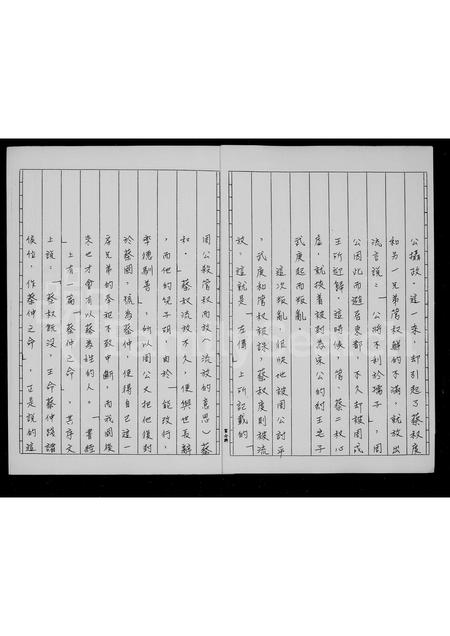 公攝政,這一來,却引起了蔡叔度
和另一兄弟管叔鮮的不滿,就放出
流言說:「公將不利於孺子」,周
公因此而避居東都,不久却被周成
王所迎歸,這時候,管、蔡二叔心
虛,就挾着被封為宋公的紂王兒子
武庚起而叛亂。
這次叛亂,很快地被周公討平
,武庚和管叔被誅,蔡叔度則被流
放。這就是「左傳」上所記載的「
周公殺管叔而放(流放的意思)蔡
叔。蔡叔流放不久,便與世長辭
,而他的兒子胡,由於「能改行,
率德馴善」,所以周公又把他復封
於蔡國,稱為蔡仲,使得自己這一
房兄弟的奉祀不致中斷,而我國後
來也才會有以蔡為姓的人。「書經
」上有一篇「蔡仲之命」,其序文
上說:「蔡叔既沒,王命蔡仲踐諸
侯位,作蔡仲之命」,正是說的這